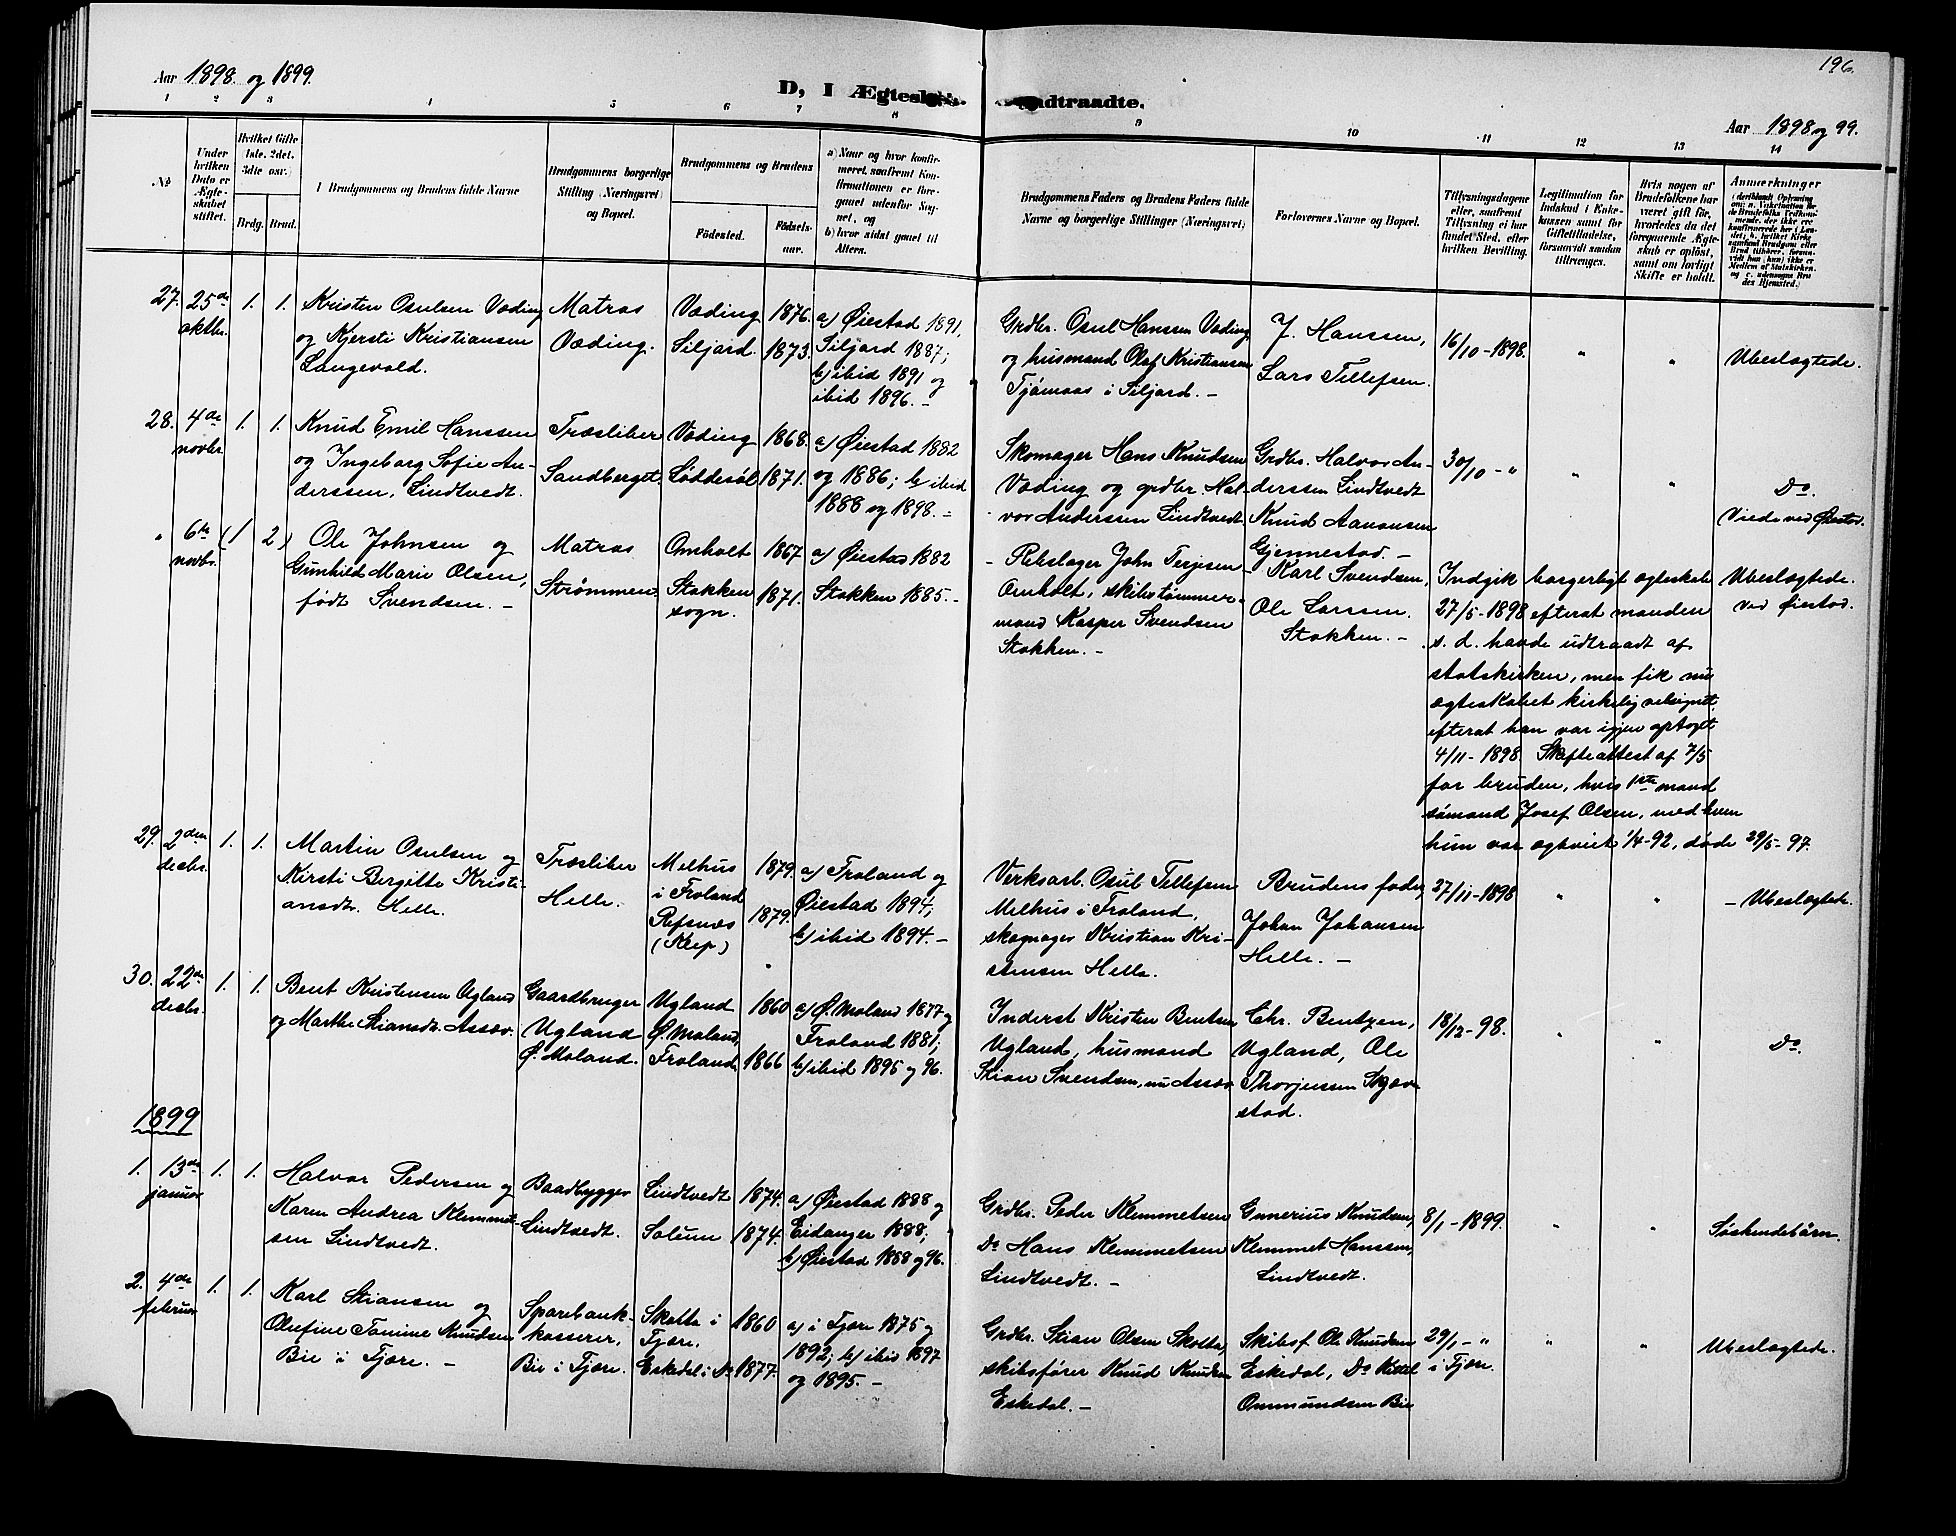 Aar 1898 og 1899.
D, I Ægtesk
dtraadte.
196.
Aar 1898 og 99.
1 2 3 4 5 6 7 8 9 10 11 12 13 14
No
Under hvilken Dato er Ægteskabet stiftet.
Hvilket Gifte 1ste. 2det. 3die osv.)
Brdg. Brud.
I Brudgommens og Brudens fulde Navne
Brudgommens borgerlige Stilling (Næringsvei) og Bopæl.
Brudgommens og Brudens
Fødested.
Fødsels-aar.
a) Naar og hvor konfirmeret, saafremt Konfirmationen er foregaaet udenfor Sognet, og
b) hvor sidst gaaet til Alters.
Brudgommens Faders og Brudens Faders fulde Navne og borgerlige Stillinger (Næringsvei)
Forlovernes Navne og Bopæl.
Tillysningsdagene eller, saafremt Tillysning ei har fundet Sted, efter hvilken Bevilling.
Legitimation for Indskud i Enkekassen samt for Giftetilladelse, forsaavidt saadan tiltrænges.
Hvis nogen af Brudefolkene har været gift før, hvorledes da det foregaaende Ægteskab er opløst, samt om lovligt Skifte er holdt.
Anmærkninger
27. 25de oktbr. 1. 1.
Kristen Osulsen Væding
og Kjersti Kristiansen
Langevald.
Matros
Væding.
Væding 1876.
Siljord. 1873.
a) Øiestad 1891,
Siljord 1887;
b) ibid 1891 og
ibid 1896. -
Grdbr. Osul Hanssen Væding
og husmand Olaf Kristiansen
Tjómaas i Siljord. -
J. Hanssen,
Lars Tellefsen.
16/10 - 1898. " "
Ubeslægtede.
28. 4de novbr 1. 1.
Knud Emil Hanssen
og Ingeborg Sofie An-
derssen, Lindtvedt.
Træsliber
Sandberget.
Væding 1868.
Løddesøl 1871.
a) Øiestad 1882
og 1886; b/ ibid
1888 og 1898. -
Skomager Hans Knudsen
Væding og grdbr. Hal-
vor Anderssen Lindtvedt
Grdbr. Halvor An-
derssen Lindtvedt
Knud Aavonsen
Gjennestad. -
30/10 - " " "
Do.
Viede ved Øiestad.
" 6te novbr. (1 2)
Ole Johnsen og
Gunhild Marie Olsen,
født Svendsen. -
Matros
Strømmen
Omholt 1867
Stokken 1871.
sogn.
a) Øiestad 1882
Stokken 1885. -
- Rebslager John Terjesen
Omholt, skibstømmer-
mand Kasper Svendsen
Stokken. -
Karl Svendsen,
Ole Larssen.
Stokken. -
Indgik borgerligt ægteskab
27/5 - 1898 efterat manden
s. d. havde udtraadt af
statskirken, men fik nu
ægteskabet kirkelig velsignet
efterat han var igjen optaget
4/11 - 1898. Skifteattest af 7/5
for bruden, hvis 1ste mand
sømand Josef Olsen, med hvem
hun var ægteviet 1/4-92, døde 29/5-97.
Ubeslægtede.
ved Øiestad.
29. 2den decbr. 1. 1.
Martin Osulsen og
Kirsti Bergitte Kristi-
ansdt. Helle.
Træsliber
Helle.
Melhus 1879.
i Froland
Refsnæs 1879.
(Kup)
a) Froland og
Øiestad 1894;
b) ibid 1894. -
Verksarb. Osul Tellefsen
Melhus i Froland,
skomager Kristian Kri-
stensen Helle.
Brudens fader,
Johan Johansen
Helle. -
27/11 - 1898 " "
- Ubeslægtede.
30. 22de decbr. 1. 1.
Bent Kristensen Ugland
og Marthe Stiansdt. Assæv.
Gaardbruger
Ugland
Ø. Moland.
Ugland 1860
Ø. Moland,
Froland 1866
a) Ø. Moland 1877 og
Froland 1881;
b) ibid 1895 og 96.
Inderst Kristen Bentsen
Ugland, husmand
Stian Svendsen, nu Assæv
Chr. Bentzen,
Ugland, Ole
Thorjussen Skjæv-
stad.
18/12 - 98. " "
Do.
1899
1. 13de januar 1. 1.
Halvor Pedersen og
Karen Andrea Klemmet-
sen Lindtvedt.
Baadbygger
Lindtvedt.
Lindtvedt 1874.
Solum 1874.
a) Øiestad 1888 og
Eidanger 1888;
b) Øiestad 1888 og 96.
Grdbr. Peder Klemmetsen
Do Hans Klemmetsen
Lindtvedt. -
Gunerius Knudsen,
Klemmet Hanssen,
Lindtvedt.
8/1 - 1899. " "
Søskendebårn.
2. 4de februar 1. 1.
Karl Stiansen og
Olufine Tomine Knudsen
Bie i Fjære. -
Sparebank-
kasserer,
Bie i Fjære.
Skolte i 1860
Fjære.
Eskedal i Do 1877.
a) i Fjære 1875 og
1892; b) ibid 1897
og 1895. -
Grdbr. Stian Olsen Skolte,
skibsfører Knud Knudsen
Eskedal. -
Skibsf. Ole Knudsen
Eskedal, Do Kittel
Ommundsen Bie
29/1 - " " "
i Fjære.
Ubeslægtede.